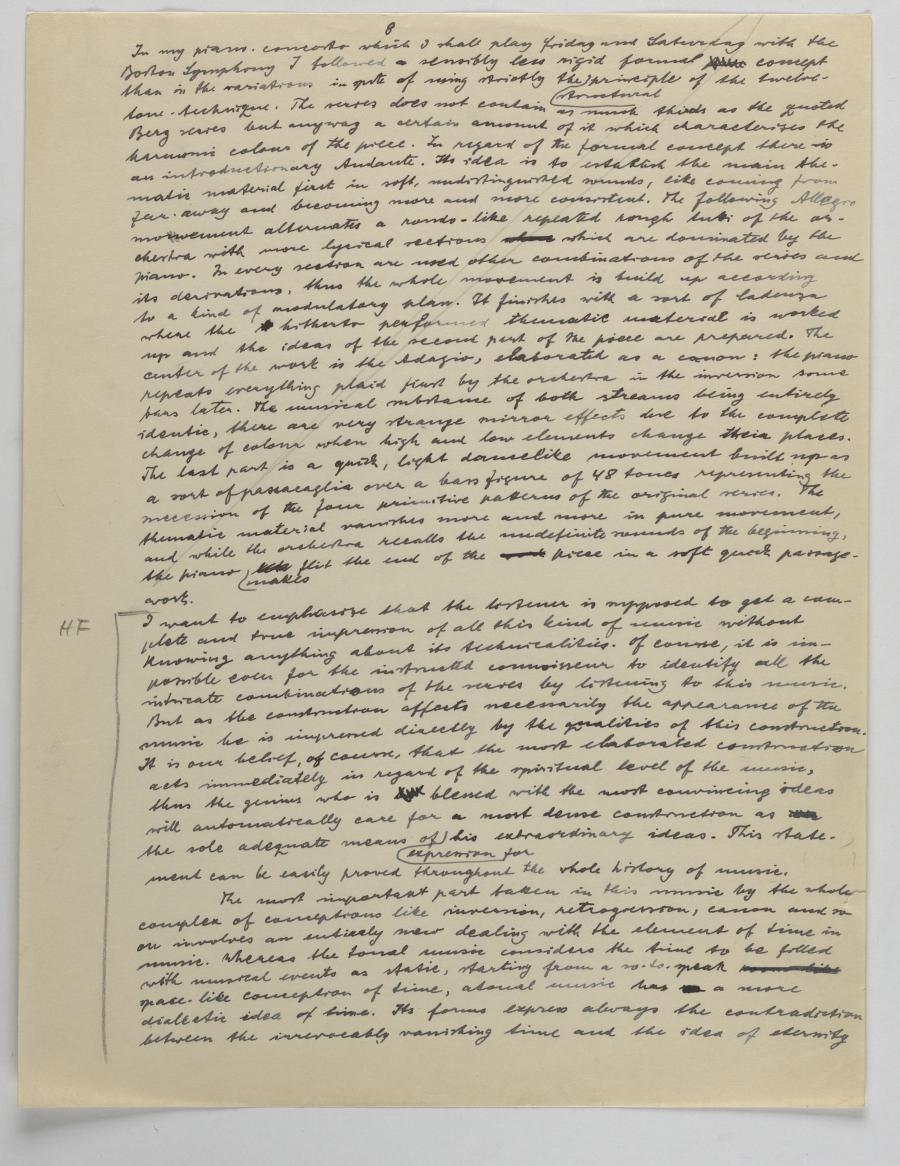 8
In my piano-concerto which I shall play Friday and Saturday with the
Boston Symphony I followed a sensibly less rigid formal concept
than in the variations in spite of using strictly the principle of the twelve-
structural
tone-technique. The series does not contain as much thirds as the quoted
Berg series but anyway a certain amount of it which characterises the
harmonic colour of the piece. In regard of the formal concept there is
an introductionary Andante. Its idea is to establish the main the-
matic material first in soft, undistinguished sounds, like coming from
far-away and becoming more and more consistent. The following Allegro
movement alternates a rondo-like repeated rough tutti of the or-
chestra with more lyrical sections which are dominated by the
piano. In every section are used other combinations of the series and
its derivations, thus the whole movement is build up according
to a kind of modulatory plan. It finishes with a sort of Cadenza
where the hitherto performed thematic material is worked
up and the ideas of the second part of the piece are prepared. The
center of the work is the Adagio, elaborated as a canon: the piano
repeats everything plaid first by the orchestra in the inversion some
bars later. The musical substance of both streams being entirely
identic, there are very strange mirror effects due to the complete
change of colour when high and low elements change their places.
The last part is a quick, light dancelike movement built up as
a sort of passacaglia over a bass figure of 48 tones representing the
succession of the four primitive patterns of the original series. The
thematic material vanishes more and more in pure movement,
and while the orchestra recalls the undefinite sounds of the beginning,
the piano makes flit the end of the piece in a soft quick passage-
work.
HF
I want to emphasize that the listener is supposed to get a com-
plete and true impression of all this kind of music without
knowing anything about its technicalities. Of course, it is im-
possible even for the instructed connoisseur to identify all the
intricate combinations of the series by listening to this music.
But as the construction affects necessarily the appearance of the
music he is impressed directly by the qualities of this construction.
It is our belief, of course, that the most elaborated construction
acts immediately in regard of the spiritual level of the music,
thus the genius who is blessed with the most convincing ideas
will automatically care for a most dense construction as
the sole adequate means of his extraordinary ideas. This state-
expression for
ment can be easily proved throughout the whole history of music.
The most important part taken in this music by the whole
complex of conceptions like inversion, retrogression, canon and so
on involves an entirely new dealing with the element of time in
music. Whereas the tonal music considers the time to be filled
with musical events as static, starting from a so-to-speak
space-like conception of time, atonal music has a more
dialectic idea of time. Its forms express always the contradiction
between the irrevocably vanishing time and the idea of eternity